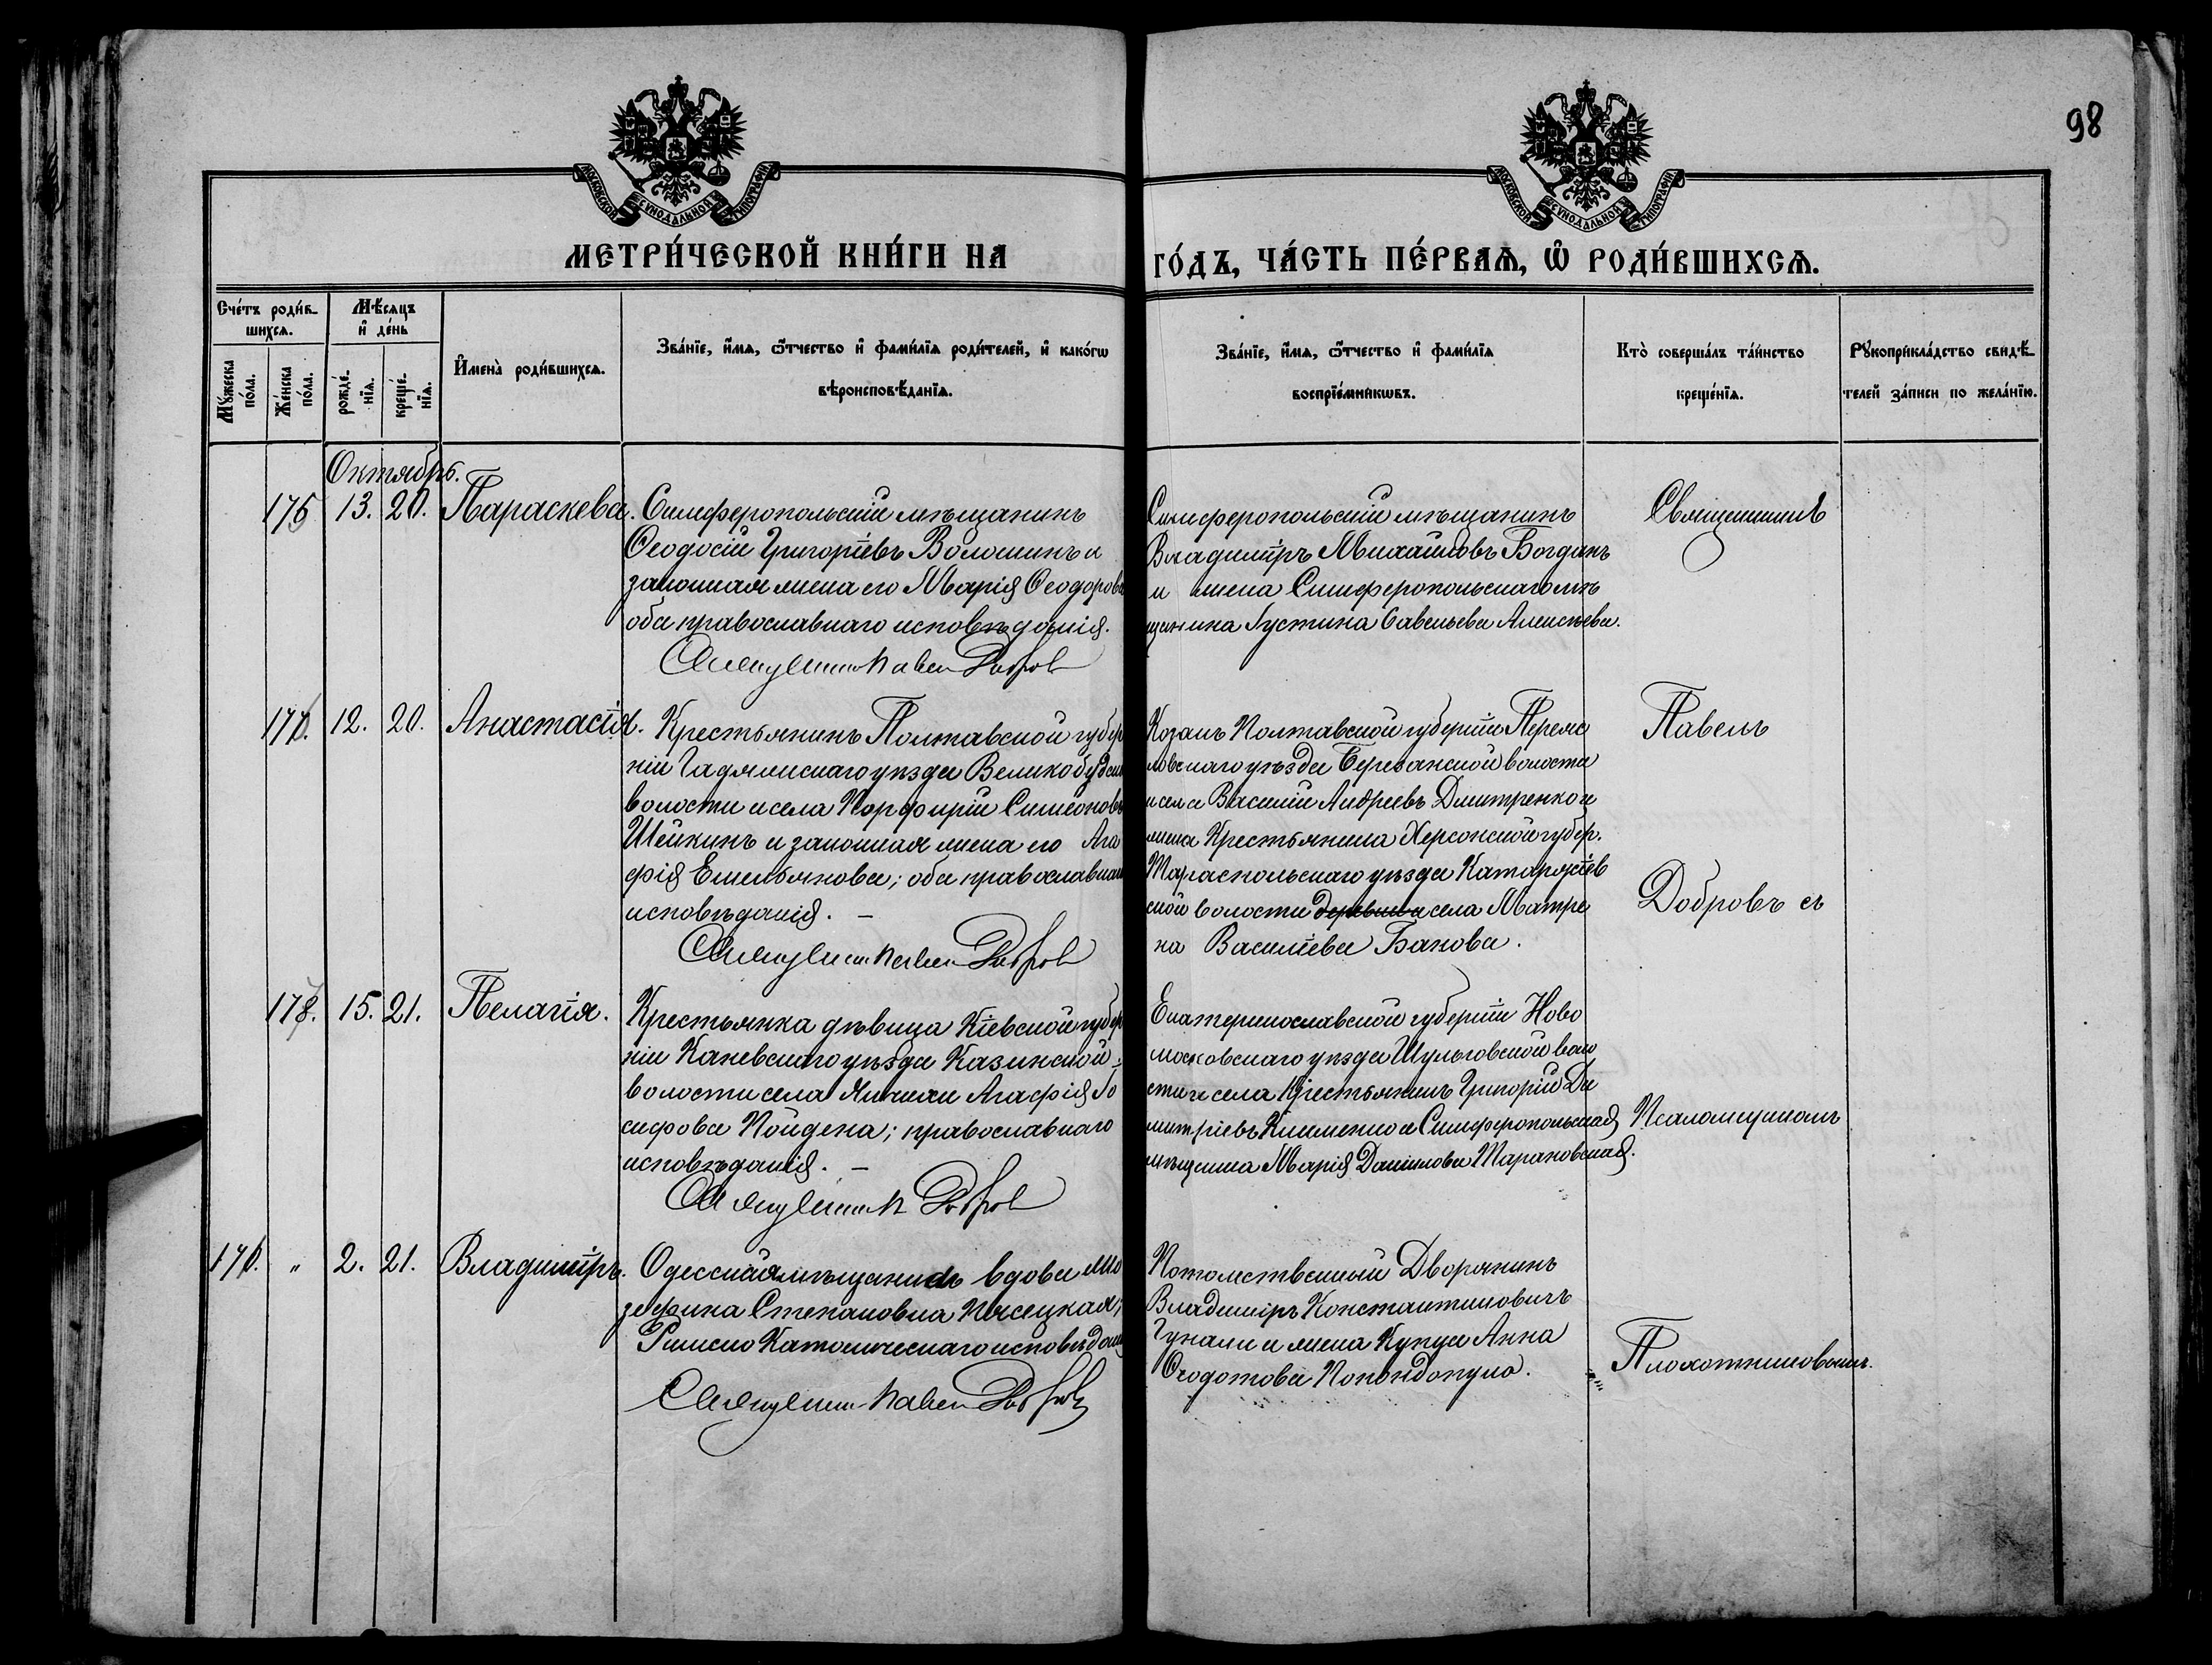 98
МОСКОВСКОЙ СѴНОДАЛЬНОЙ ТИПОГРАФІИ
МОСКОВСКОЙ СѴНОДАЛЬНОЙ ТИПОГРАФІИ
МЕТРИ́ЧЕСКОЙ КНИ́ГИ НА
ГО́ДЪ, ЧА́СТЬ ПЕ́РВАѦ, Ѡ҆ РОДИ́ВШИХСѦ.
Сче́тъ роди́в-
шихсѧ.
Мꙋ́жеска
по́ла.
Же́нска
по́ла.
Мѣ́сѧцъ
и҆ де́нь
рожде́-
нїѧ.
креще́-
нїѧ.
И҆мена̀ роди́вшихсѧ.
Зва́нїе, и҆́мѧ, ѻ҆́тчество и҆ фами́лїѧ роди́телей, и҆ како́гѡ
вѣроисповѣ́данїѧ.
Зва́нїе, и҆́мѧ, ѻ҆́тчество и҆ фами́лїѧ
воспрїе́мникѡвъ.
Кто̀ соверша́лъ та́инство
креще́нїѧ.
Рꙋкоприкла́дство свидѣ́-
телей за́писи по жела́нїю.
Октябрь.
175 13. 20. Параскева.
Симферопольскій мѣщанинъ
Ѳеодосій Григоріевъ Волошинъ и
законная жена его Марія Ѳеодорова
оба православнаго исповѣданія.
Священник Павел Добров
Симферопольскій мѣщанинъ
Владиміръ Михайловъ Богданъ
и жена Симферопольскаго мѣ
щанина Іустина Савельева Алексѣева.
Священникъ
176. 12. 20. Анастасія.
Крестьянинъ Полтавской губер
ніи Гадячскаго уѣзда Великобудск
волости и села Порфирій Симеоновъ
Шейкинъ и законная жена его Ага
фія Емельянова; оба православнаго
исповѣданія. —
Священник Павел Добров
Козакъ Полтавской губерніи Переяс
ловскаго уѣзда Березанской волости
и села Василій Андреевъ Дмитренко и
жена Крестьянина Херсонской губер.
Тираспольскаго уѣзда Катаржіев
ской волости деревни и села Матре
на Василіева Бакова.
Павелъ
Добровъ съ
178. 15. 21. Пелагія.
Крестьянка дѣвица Кіевской губер
ніи Каневскаго уѣзда Казинской
волости села Агафія Іо
сифова Пойдена; православнаго
исповѣданія. —
Священник П Добров
Екатеринославской губерніи Ново
московскаго уѣзда Шульговской воло
сти и села Крестьянинъ Григорій Ди
митріевъ Клименко и Симферопольская
мѣщанка Марія Даниилова Тарановская.
Псаломщикомъ
176. " 2. 21. Владиміръ.
Одесская мѣщанка вдова Жо
зефина Степановна Пясецкая;
Римско Католическаго исповѣдан
Священник Павел Добров
Потомственный Дворянинъ
Владиміръ Константиновичъ
и жена Купца Анна
Ѳеодотова Попандопуло.
Плохотниковымъ.